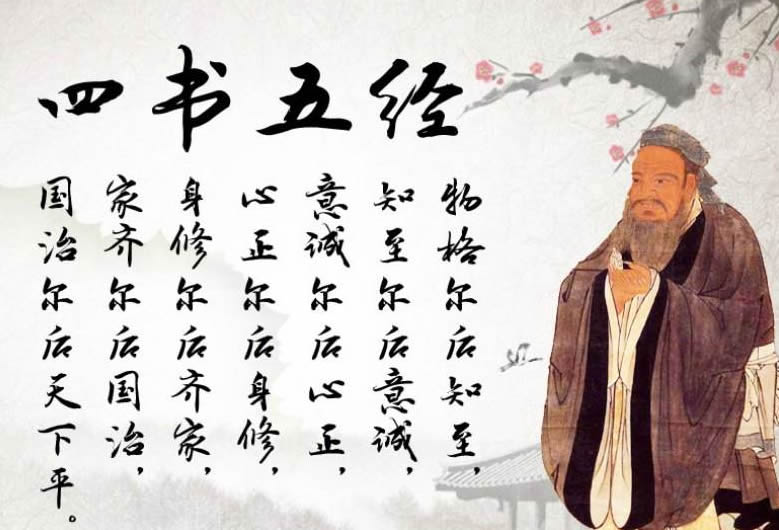 四书五经
物格尔后知至，
知至尔后意诚，
意诚尔后心正，
心正尔后身修，
身修尔后齐家，
家齐尔后国治，
国治尔后天下平。